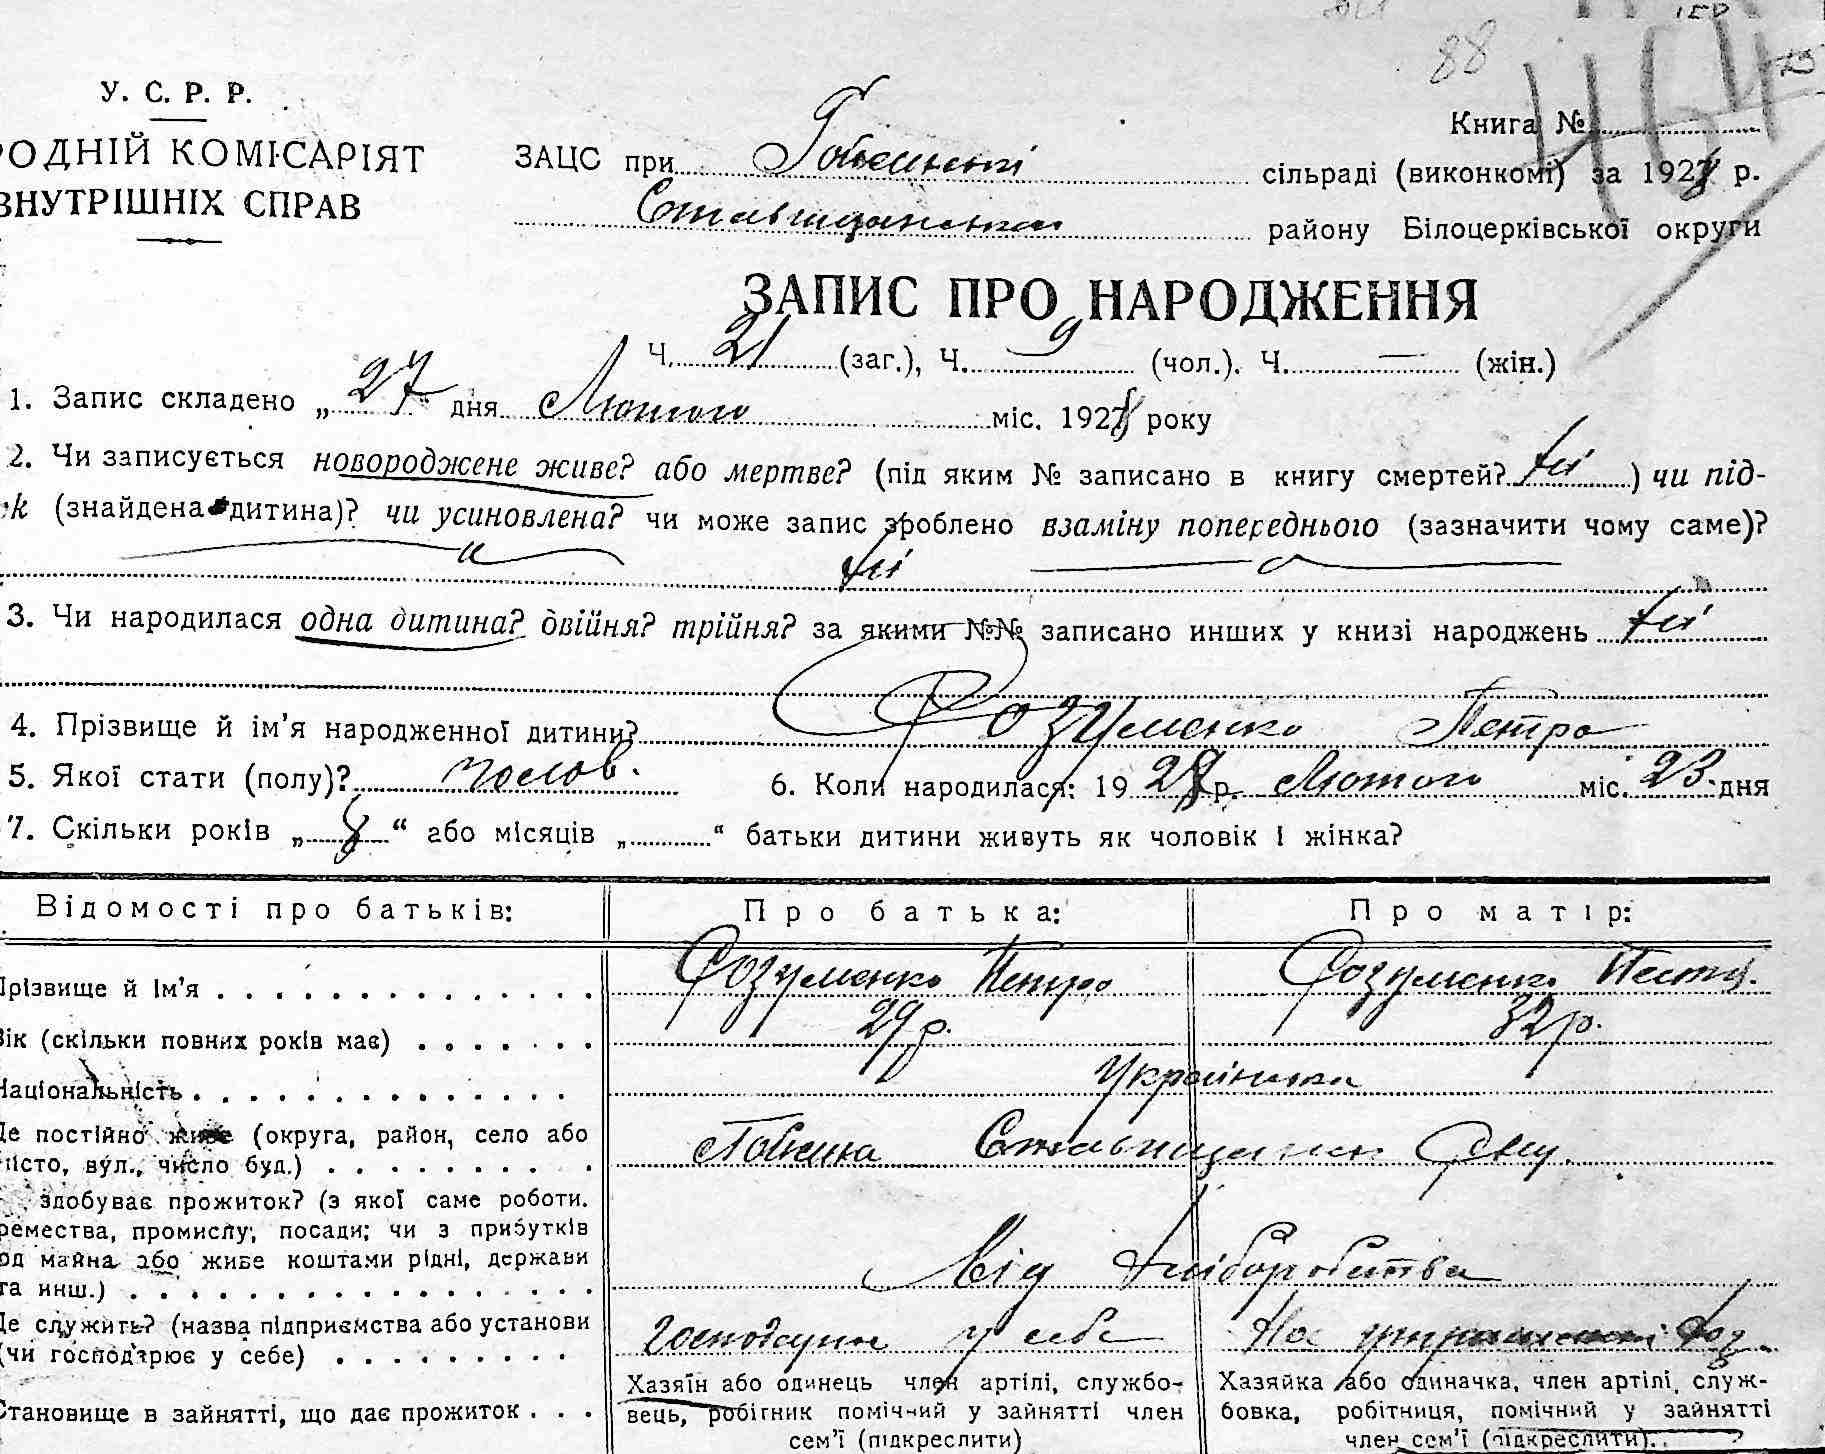 88
У. С. Р. Р.
РОДНІЙ КОМІСАРІЯТ
ВНУТРІШНІХ СПРАВ
Книга №
ЗАЦС при сільраді (виконкомі) за 1928 р.
Ставищанськом району Білоцерківської округи
ЗАПИС ПРО НАРОДЖЕННЯ
Ч. 21 (заг.), Ч. 9 (чол.). Ч. — (жін.)
1. Запис складено „27" дня Лютого міс. 1928 року
2. Чи записується новороджене живе? або мертве? (під яким № записано в книгу смертей? ні) чи під-
к (знайдена дитина)? чи усиновлена? чи може запис зроблено взаміну попереднього (зазначити чому саме)?
ні
3. Чи народилася одна дитина? двійня? трійня? за якими №№ записано инших у книзі народжень ні
4. Прізвище й ім'я народженної дитини? Розуменко Петро
5. Якої стати (полу)? чолов. 6. Коли народилася: 1928 р. Лютого міс. 23 дня
7. Скільки років „8“ або місяців „“ батьки дитини живуть як чоловік і жінка?
Відомості про батьків: Про батька: Про матір:
Прізвище й ім'я Розуменко Петро Розуменко
Вік (скільки повних років має) 29 р. 32 р.
Національність Українська
Де постійно живе (округа, район, село або
місто, вул., число буд.)
здобуває прожиток? (з якої саме роботи.
ремества, промислу, посади; чи з прибутків
од майна або живе коштами рідні, держави
та инш.) Від хліборобства
Де служить? (назва підприємства або установи
(чи господарює у себе) Господарює у себе На
Становище в зайнятті, що дає прожиток
Хазяїн або одинець член артілі, службо-
вець, робітник помічний у зайнятті член
сем'ї (підкреслити)
Хазяйка або одиначка, член артілі, служ-
бовка, робітниця, помічний у зайнятті
член сем'ї (підкреслити)